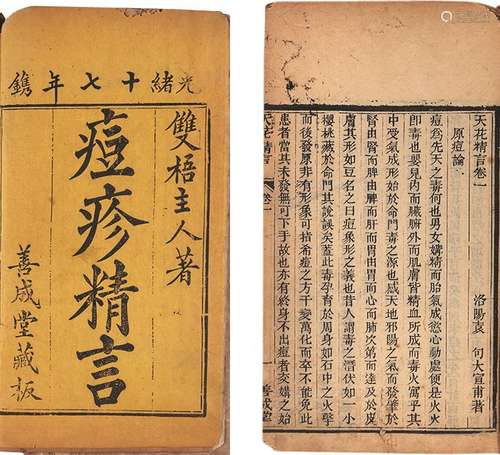 光緒十七年鐫
雙梧主人著
痘疹精言
善成堂藏板
天花精言卷一
洛陽袁 句大宣甫著
原痘論
痘爲先天之毒何也男女媾精而胎氣成慾心動處便是火火
即毒也嬰兒内而臟腑外而肌膚皆精血所成而毒火寓乎其
中受氣成形始於命門毒之源也感天地邪陽之氣而發肇於
腎由腎而脾由脾而肝而胃由胃而心而肺次第而達及於皮
膚其形如豆名之曰痘象形之義也昔人謂毒之潛伏如一小
櫻桃藏於命門其說誤矣蓋此毒孕育於周身如石中之火擊
而後發原非有形象可指希痘之方千變萬化而卒不能免此
患者當其未發無可下手故也亦有終身不出痘者亥媾之始
天花精言 卷一
善成堂